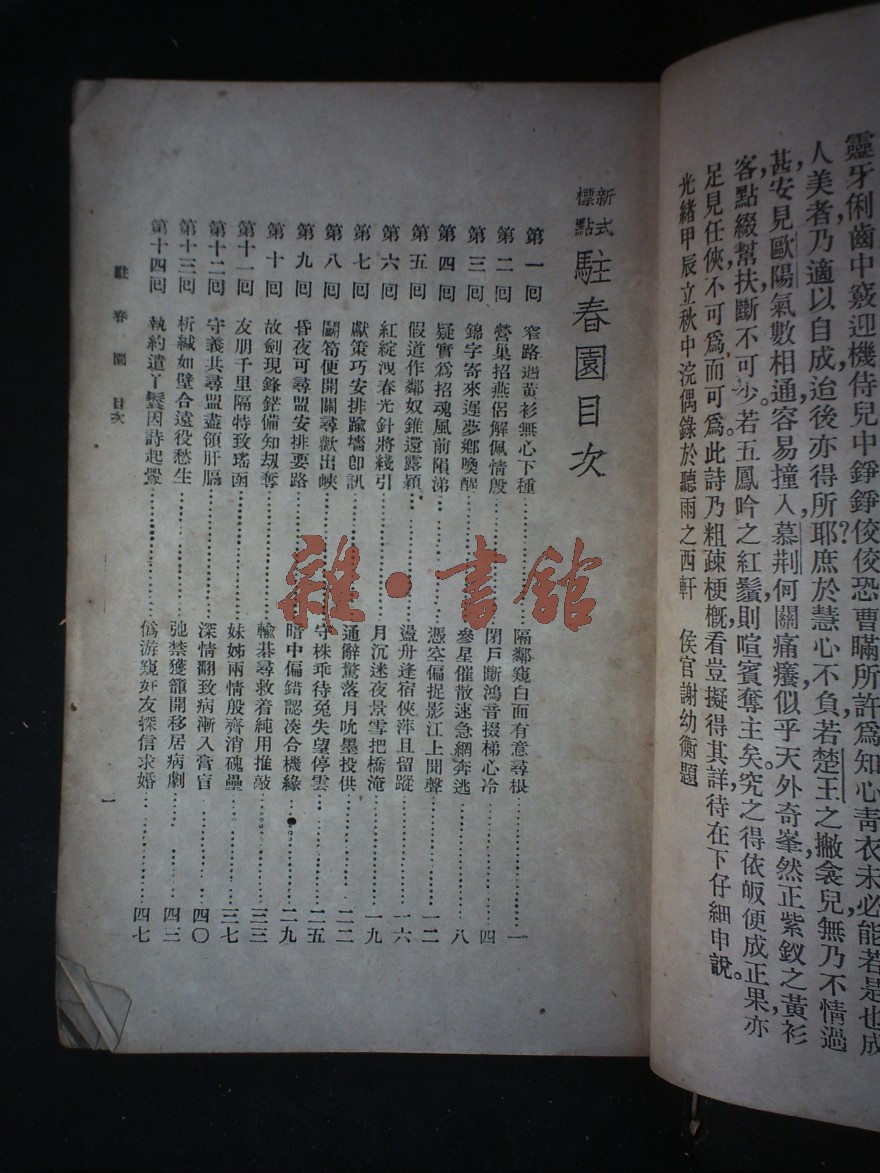 靈牙俐齒中竅迎機侍兒中錚錚佼佼恐曹瞞所許爲知心靑衣未必能若是也成
人美者乃適以自成迨後亦得所耶庶於慧心不負若楚王之撇衾兒無乃不情過
甚安見歐陽氣數相通容易撞入慕荆何關痛癢似乎天外奇峯然正紫釵之黃衫
客點綴幫扶斷不可少若五鳳吟之紅鬚則喧賓奪主矣究之得依皈便成正果亦
足見任俠不可爲而可爲此詩乃粗疎梗槪看豈擬得其詳待在下仔細申說。
光緒甲辰立秋中浣偶錄於聽雨之西軒　侯官謝幼衡題
新式標點 駐春園目次
第一回　窄路過黃衫無心下種……隔鄰窺白面有意尋根……一
第二回　營巢招燕侶解佩情殷……閉戶斷鴻音掇梯心冷……四
第三回　錦字寄來遲夢鄉喚醒……參星催散速急網奔逃……八
第四回　疑實爲招魂風前隕涕……憑空偏捉影江上聞聲……一二
第五回　假道作鄰奴錐還露穎……盪舟逢宿俠萍且留蹤……一六
第六回　紅綻洩春光針將綫引……月沉迷夜景雪把橋淹……一九
第七回　獻策巧安排踰墻卽訊……通辭驚落月吮墨投供……二二
第八回　鬭筍便開關尋歡出峽……守株乖待兔失望停雲……二五
第九回　昏夜可尋盟安排要路……暗中偏錯認凑合機緣……二九
第十回　故劍現鋒鋩備知刼奪……輸碁尋救着純用推敲……三三
第十一回　友朋千里隔特致瑤函……妹姊兩情般齊消磈壘……三七
第十二回　守義共尋盟盡領肝膈……深情翻致病漸入膏肓……四〇
第十三回　析緘如璧合遠役愁生……弛禁獲籠開移居病劇……四三
第十四回　執約遣丫鬟因詩起釁……僞游窺奸友探信求婚……四七
駐春園　目次
一
雜·書館